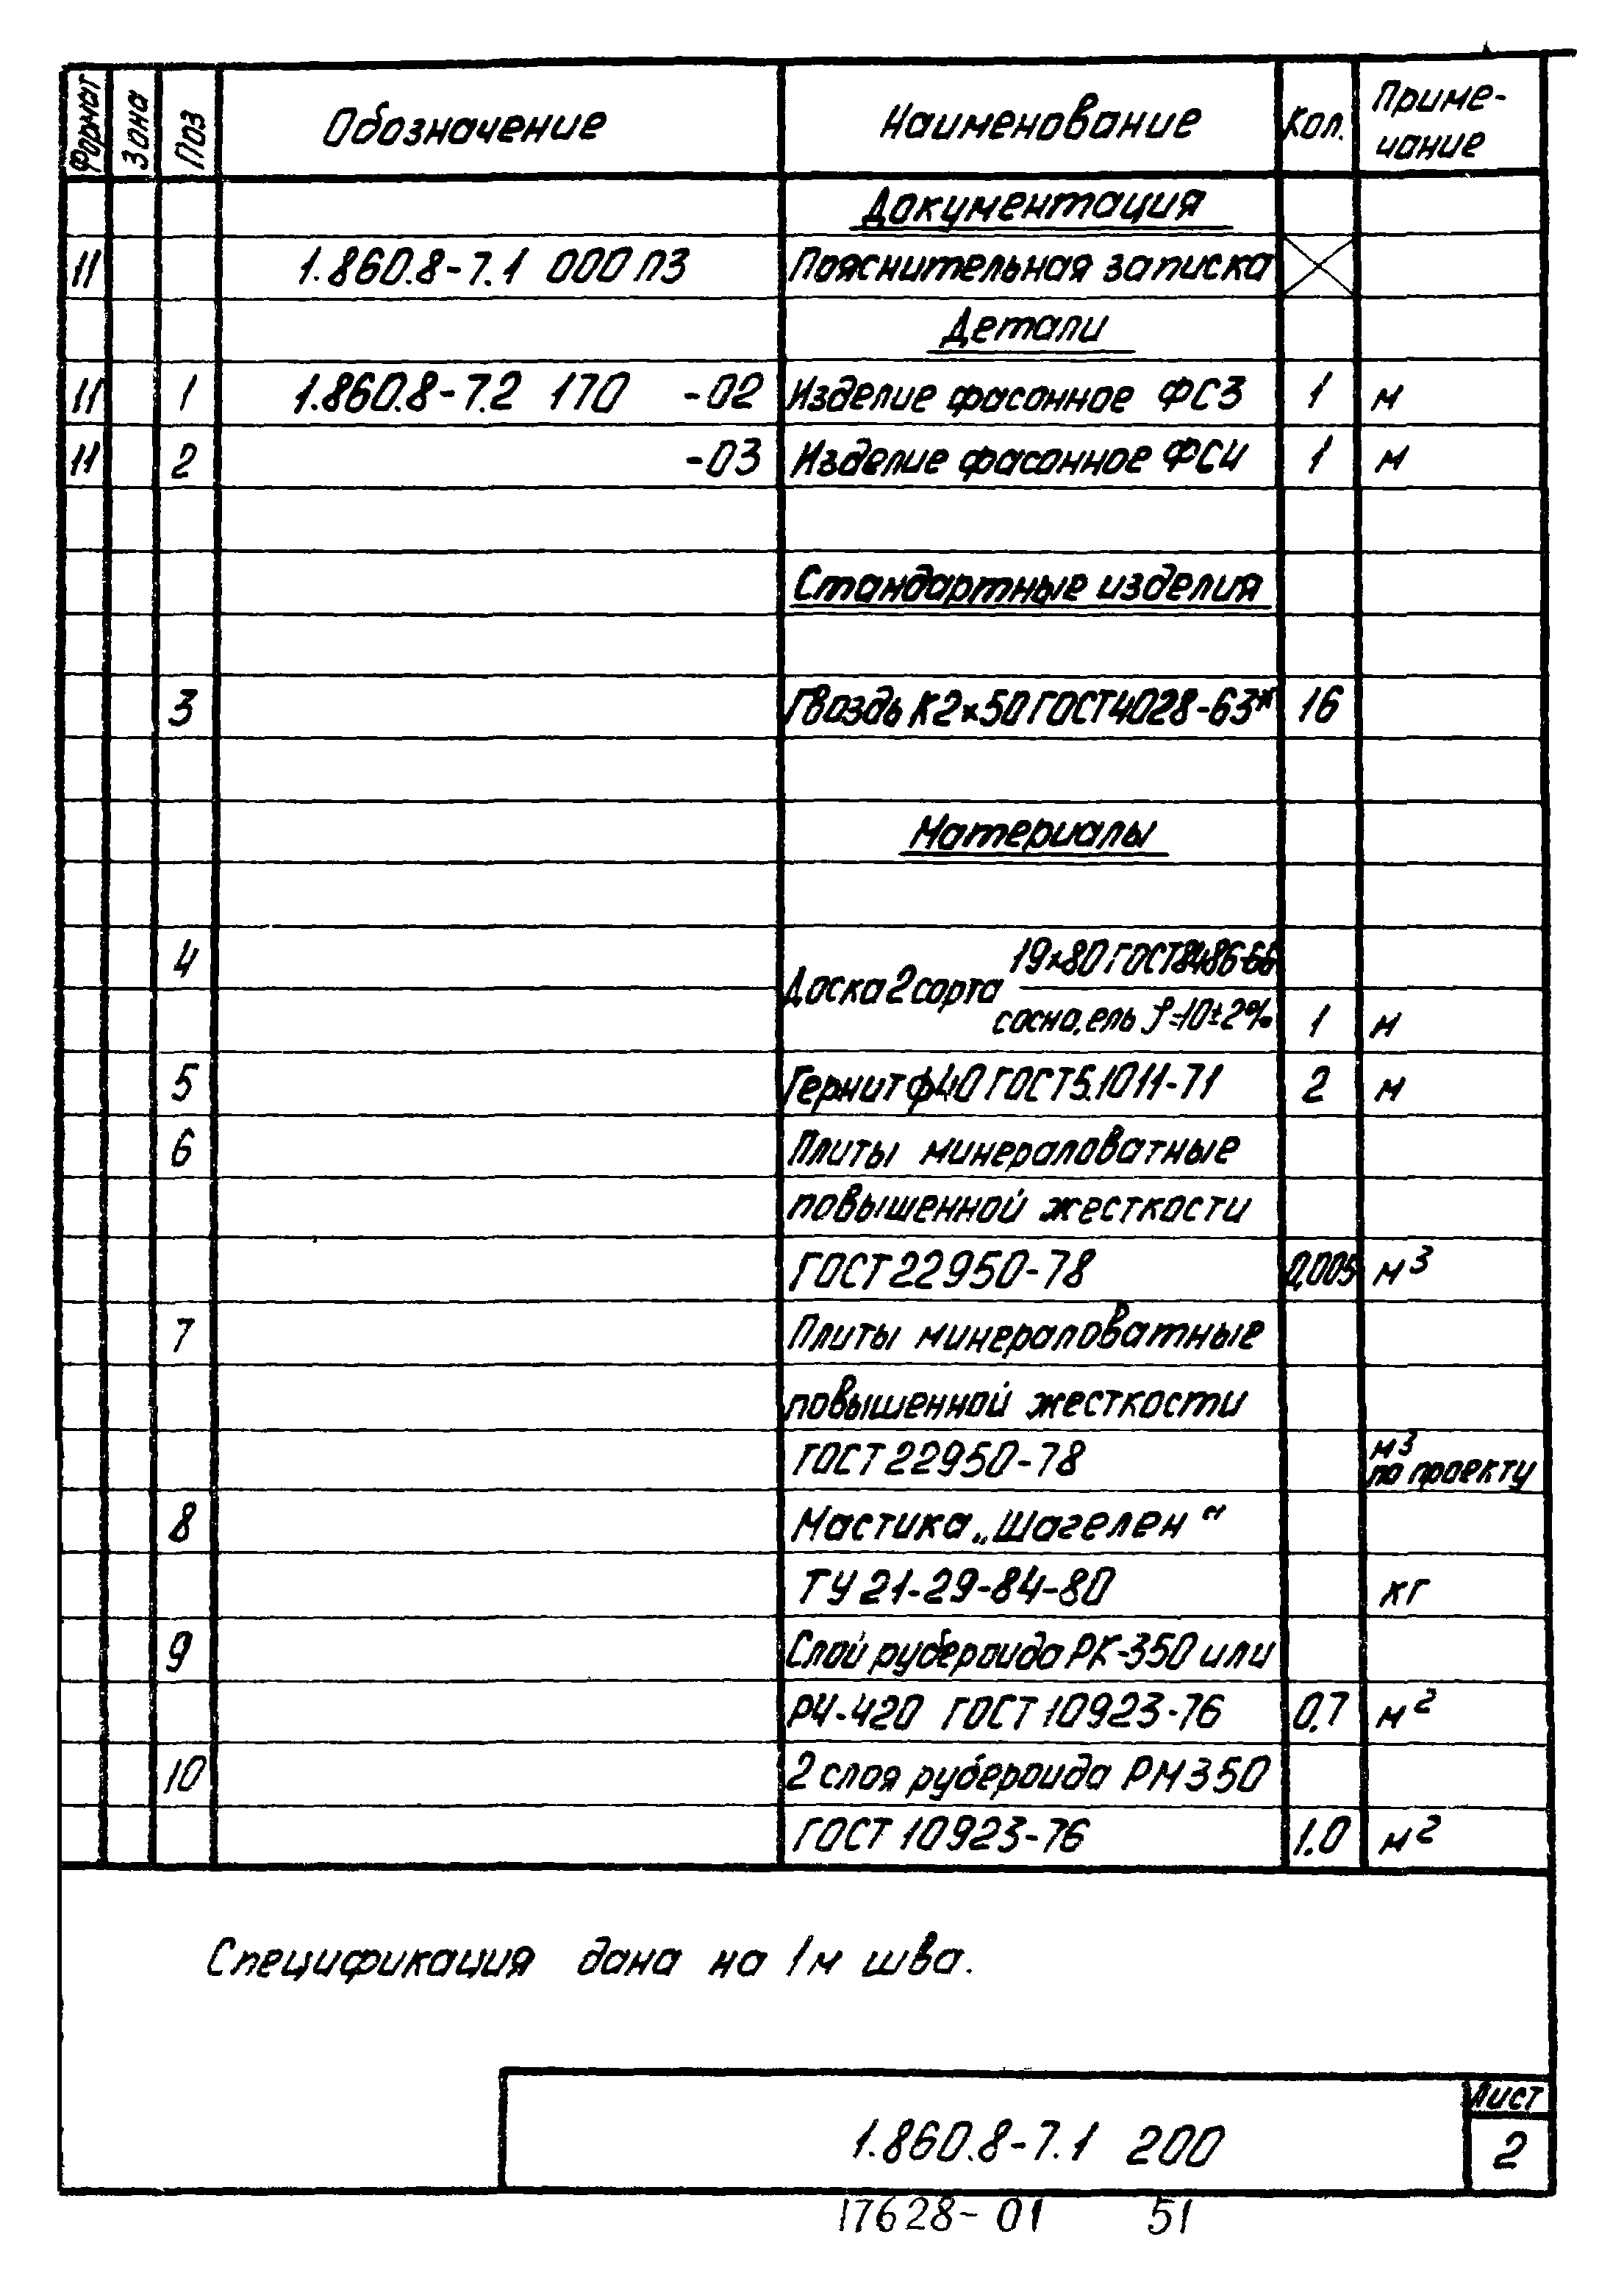 Формат Зона Поз Обозначение Наименование Кол. Приме-
чание
Документация
11 1.860.8-7.1 000 ПЗ Пояснительная записка
Детали
11 1 1.860.8-7.2 170 -02 Изделие фасонное ФС3 1 м
11 2 -03 Изделие фасонное ФС4 1 м
Стандартные изделия
3 Гвоздь К2×50 ГОСТ 4028-63* 16
Материалы
4 19×80 ГОСТ 8486-66
Доска 2 сорта
сосна, ель 𝒫=10±2% 1 м
5 Гернит ф40 ГОСТ 5.1011-71 2 м
6 Плиты минераловатные
повышенной жесткости
ГОСТ 22950-78 0,005 м³
7 Плиты минераловатные
повышенной жесткости
ГОСТ 22950-78 м³
по проекту
8 Мастика „Шагелен“
ТУ 21-29-84-80 кг
9 Слой рубероида РК-350 или
РЧ-420 ГОСТ 10923-76 0.7 м²
10 2 слоя рубероида РМ350
ГОСТ 10923-76 1.0 м²
Спецификация дана на 1м шва.
Лист
1.860.8-7.1 200 2
17628-01 51